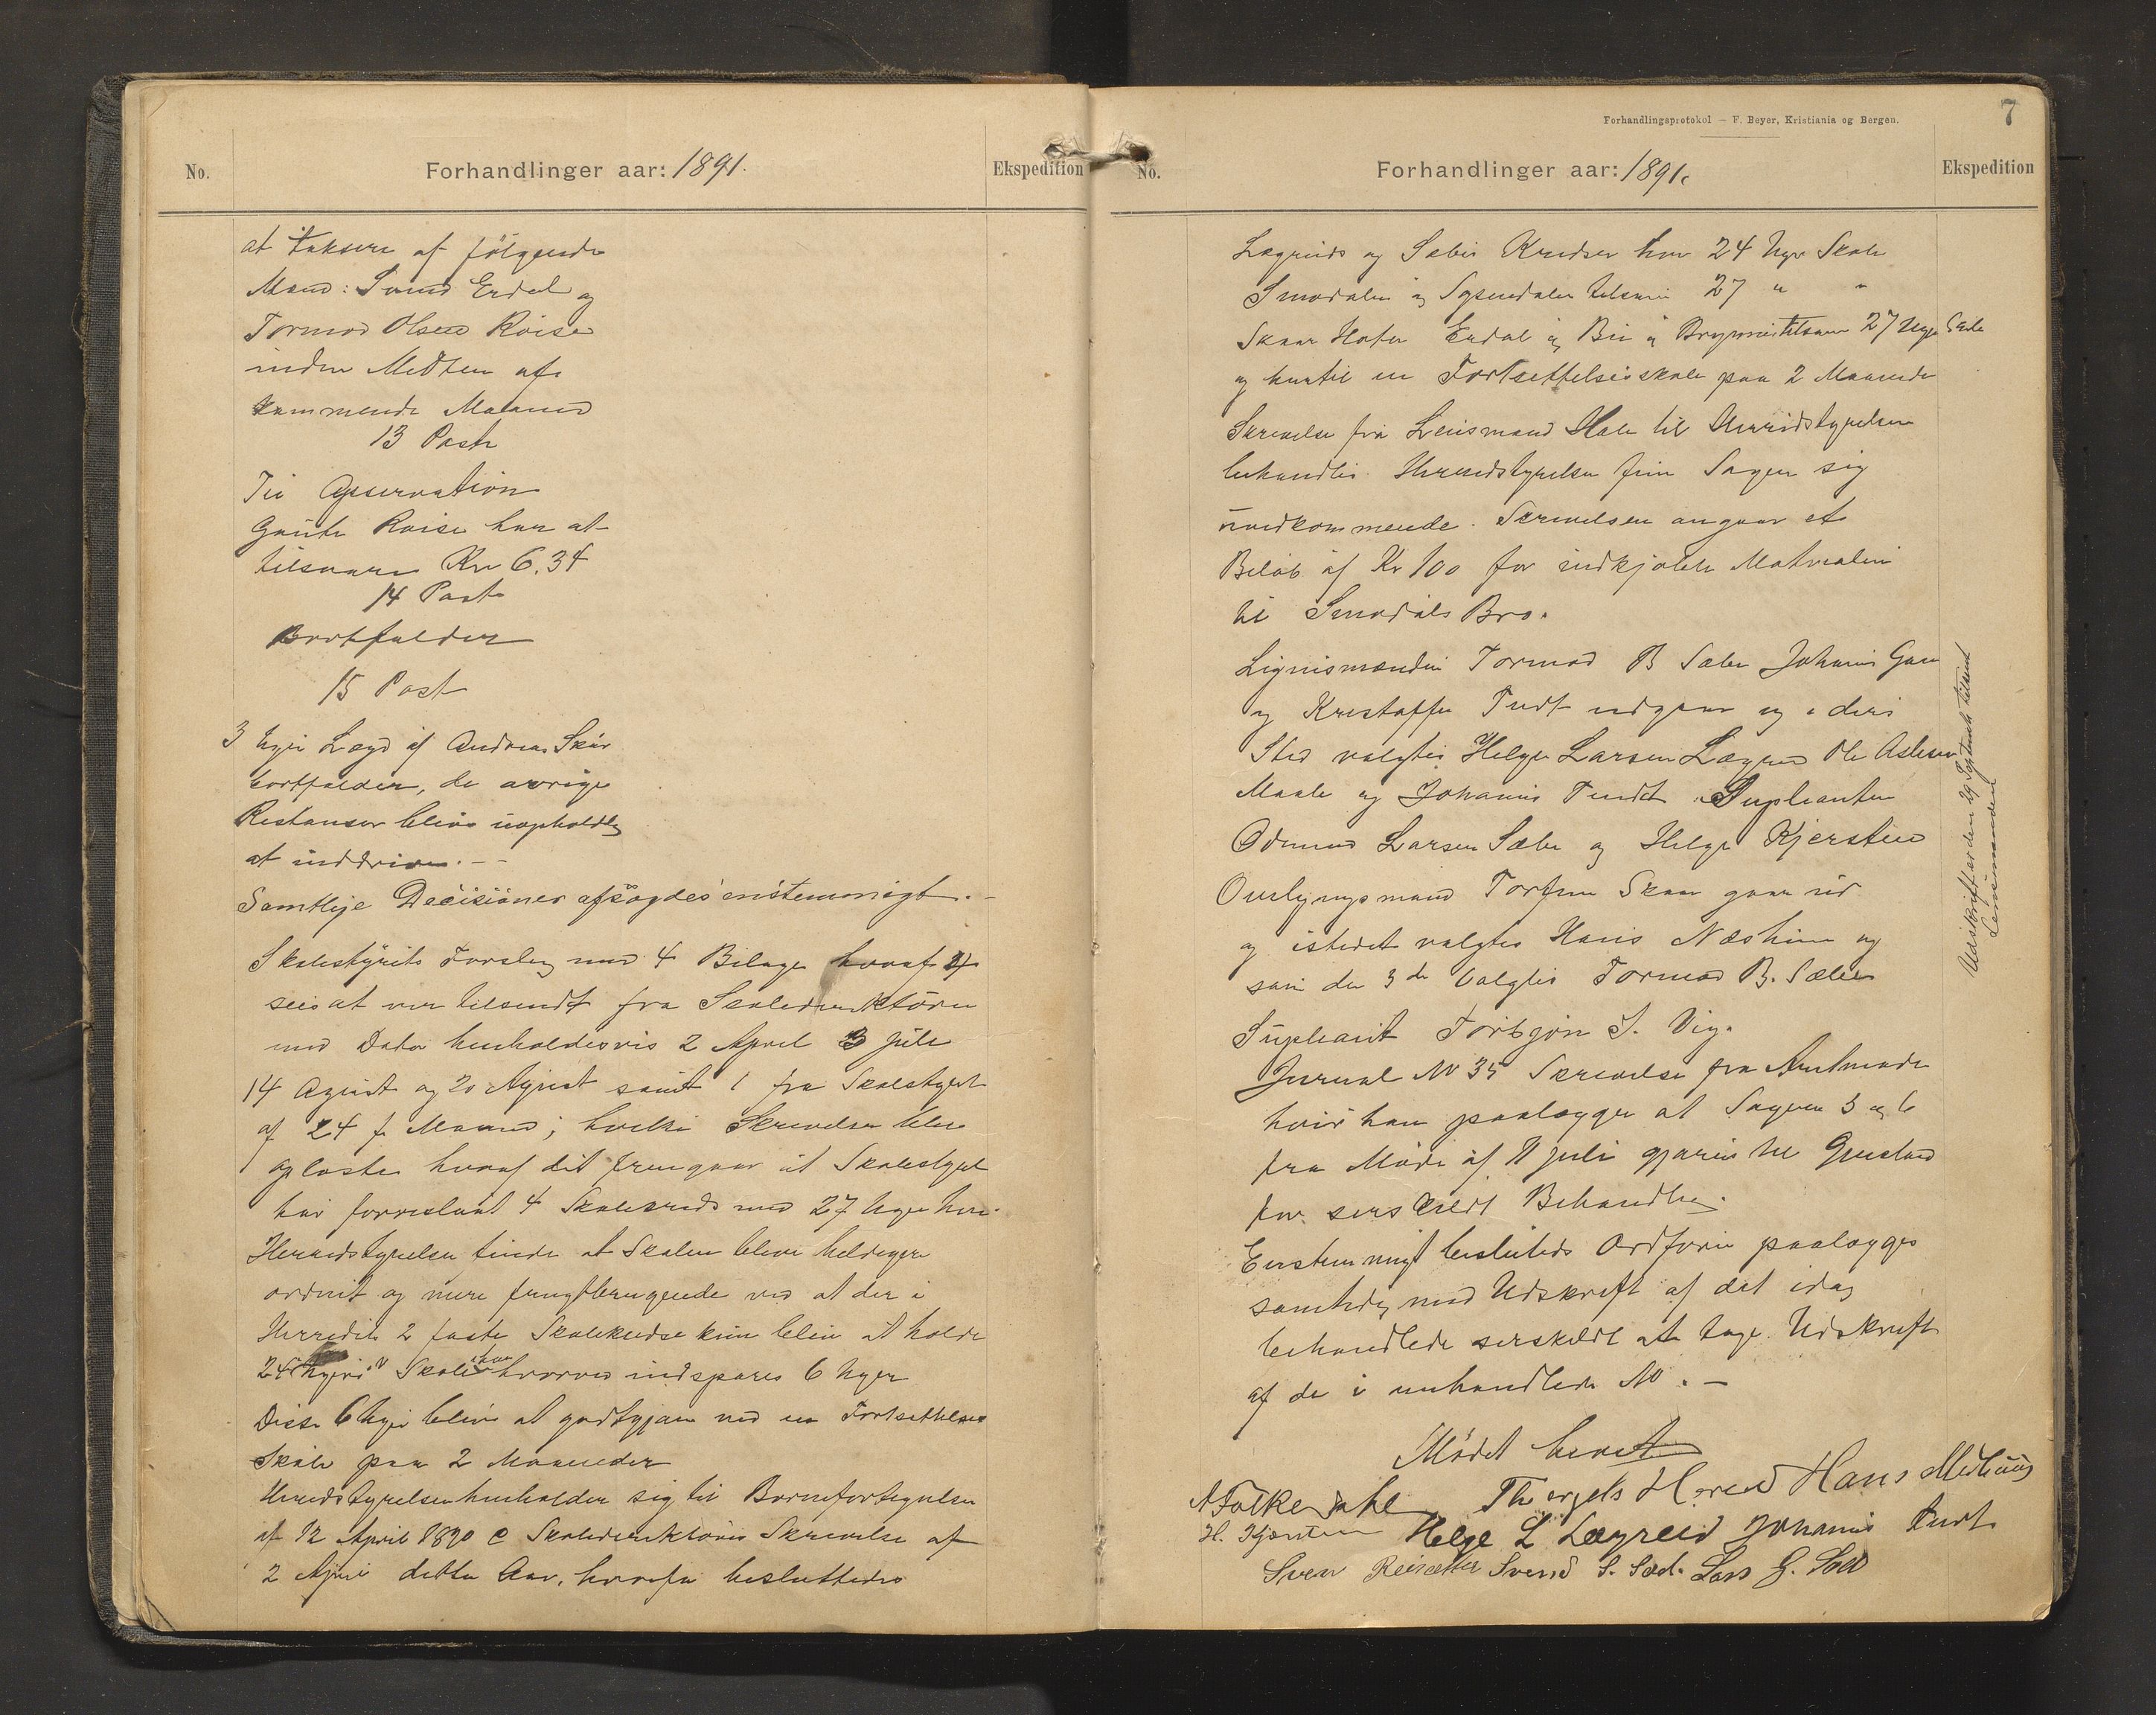 No.
Forhandlinger aar: 1891.
Ekspedition
at taksere af følgende
Mænd: Svend Erdal og
Tormod Olsen Røise
inden Midten af
kommende Maaned
13 Post
Til Observation
Gaute Røise har at
tilsvare Kr 6.34
14 Post
Bortfalder
15 Post
3 Uger Lægd af Andreas Skår
bortfalder, de øvrige
Restanser blive uopholdlig
at inddrive. -
Samtlige Decisioner afsagdes enstemmigt. -
Skolestyrets Forslag med 4 Bilage hvoraf 4
sees at være tilsendt fra Skoledirektøren
med Dato henholdsvis 2 April 3 Juli
14 August og 20 August samt 1 fra Skolestyret
af 24 f. Maaned; hvilke Skrivelser blev
oplæste hvoraf det fremgaar at Skolestyret
har foreslaaet 4 Skolekreds med 27 Uger hver
Herredstyrelsen finder at Skolen bliver heldigere
ordnet og mere frugtbringende ved at der i
Herredet 2 faste Skolekredse kun blive at holde
24 Ugers Skole hvorved indspares 6 Uger
Disse 6 Uger blive at godtgjøre ved en Fortsettelses
Skole paa 2 Maaneder
Herredstyrelsen henholder sig til Børnefortegnelsen
af 12 April 1890 & Skoledirektørens Skrivelse af
2 April dette Aar, hvorfor besluttedes
Forhandlingsprotokol — F. Beyer, Kristiania og Bergen.
7
No.
Forhandlinger aar: 1891.
Ekspedition
Lægreids og Sæbø Kredser hver 24 Uger Skole
Simodalen og Sysendalen tilsamen 27 " "
Skaar Hafen Erdal og Bu og Brynnes tilsamen 27 Uger Skole
og hertil en Fortsettelsesskole paa 2 Maaneder
Skrivelse fra Lensmand Hole til Herredstyrelsen
behandles. Herredstyrelsen finer Sagen sig
uvedkommende. Skrivelsen angaar et
Beløb af Kr 100 for indkjøbte Matrialier
til Simodals Bro.
Ligningsmændene Tormod B Sæbø Johannes Garen
og Kristoffer Tveit udgaar og i deres
Sted valgtes Helge Larsen Lægreid Ole Aslesen
Maale og Johannes Tveit. Supleanter
Odmund Larsen Sæbø og Helge Kjerstein
Overligningsmand Torfinn Skaar gaar ud
og istedet valgtes Hans Næsheim og
som den 3de valgtes Tormod B. Sæbø
Supleant Torbjørn S. Vig.
Jurnal No 35 Skrivelse fra Amtmanden
hvor han paalægger at Sagerne 3 og 6
fra Møde af 11 Juli gjøres til Gjenstand
for serskildt Behandling.
Enstemmigt besluttedes Ordføren paalægges
samtidig med Udskrift af det idag
behandlede serskildt at tage Udskrift
af de i omhandlede No. -
Udskrift er den 29 Septemb tilsendt
Lensmanden
Mødet hævet
A Folkedahl Thorgils Hereid Hans Medhuus
H. Kjerstein Helge L Lægreid Johannis Tveit
Sven Reisæter Svend S. Sæd. Lars G. Sæd